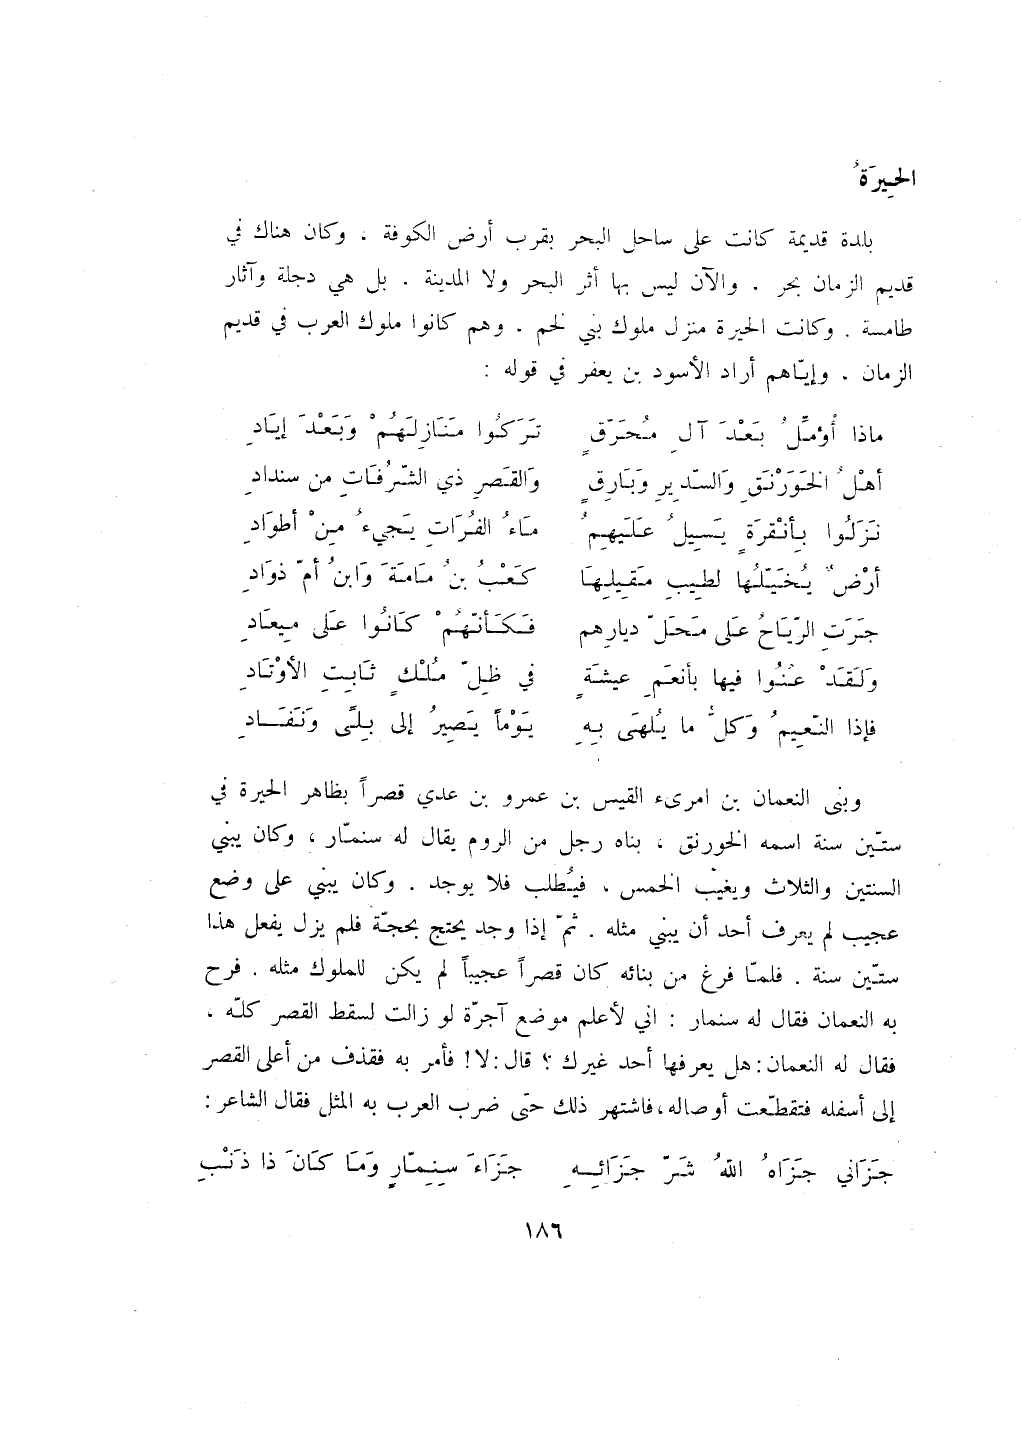 الحِيرَةُ
بلدة قديمة كانت على ساحل البحر بقرب أرض الكوفة . وكان هناك في
قديم الزمان بحر . والآن ليس بها أثر البحر ولا المدينة . بل هي دجلة وآثار
طامسة . وكانت الحيرة منزل ملوك بني لخم . وهم كانوا ملوك العرب في قديم
الزمان . وإيّاهم أراد الأسود بن يعفر في قوله :
ماذا أُوَمِّلُ بَعْدَ آلِ مُحَرَّقٍ تَرَكُوا مَنَازِلَهُمْ وَبَعْدَ إيَادِ
أهْلُ الخَوَرْنَقِ وَالسّدِيرِ وَبَارِقٍ وَالقَصرِ ذي الشّرُفَاتِ من سندادِ
نَزَلُوا بِأنْقرَةٍ يَسِيلُ عَلَيهِمُ مَاءُ الفُرَاتِ يَجيءُ مِنْ أطوَادِ
أرْضٌ يُخَيّلُها لطِيبِ مَقيلِها كَعْبُ بنُ مَامَةَ وَابنُ أمّ ذوَادِ
جَرَتِ الرّيَاحُ عَلى مَحَلّ ديارِهم فَكَأنّهُمْ كَانُوا عَلى مِيعَادِ
وَلَقَدْ غَنُوا فيها بأنعَمِ عيشَةٍ في ظِلّ مُلْكٍ ثَابِتِ الأوْتَادِ
فإذا النّعِيمُ وَكلُّ ما يُلهَى بِهِ يَوْماً يَصِيرُ إلى بِلًى وَنَفَادِ
وبنى النعمان بن امرىء القيس بن عمرو بن عدي قصراً بظاهر الحيرة في
ستّين سنة اسمه الخورنق ، بناه رجل من الروم يقال له سنمّار ، وكان يبني
السنتين والثلاث ويغيّب الخمس ، فيُطلب فلا يوجد . وكان يبني على وضع
عجيب لم يعرف أحد أن يبني مثله . ثمّ إذا وجد يحتج بحجّة فلم يزل يفعل هذا
ستّين سنة . فلمّا فرغ من بنائه كان قصراً عجيباً لم يكن للملوك مثله . فرح
به النعمان فقال له سنمار : اني لأعلم موضع آجرّة لو زالت لسقط القصر كلّه ،
فقال له النعمان: هل يعرفها أحد غيرك ؟ قال: لا! فأمر به فقذف من أعلى القصر
إلى أسفله فتقطّعت أوصاله، فاشتهر ذلك حتى ضرب العرب به المثل فقال الشاعر :
جَزَاني جَزَاهُ اللهُ شَرّ جَزَائِهِ جَزَاءَ سِنِمّارٍ وَمَا كَانَ ذا ذَنْبِ
١٨٦